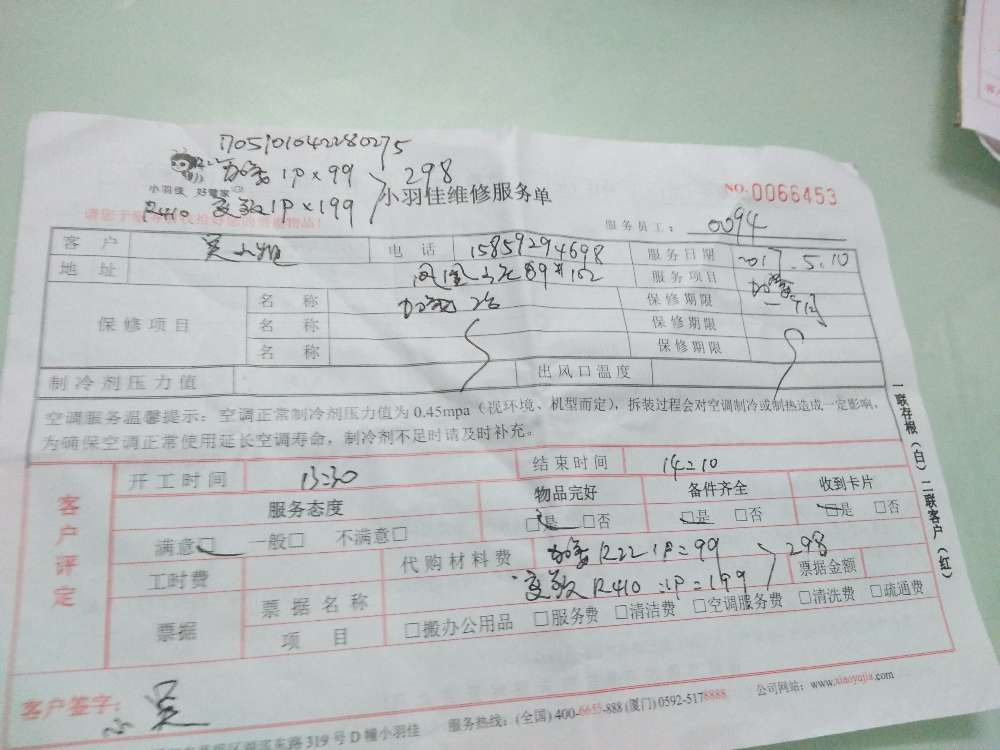 1705101042280275
1P×99
298
小羽佳 好管家
小羽佳维修服务单
NO.0066453
R410 1P×199
服务员工: 0094
客 户 吴小姐 电 话 15859294698 服务日期 2017.5.10
地 址 89#102 服务项目
保修项目 名 称 保修期限
名 称 保修期限
名 称 保修期限
制冷剂压力值 出风口温度
空调服务温馨提示:空调正常制冷剂压力值为0.45mpa(视环境、机型而定),拆装过程会对空调制冷或制热造成一定影响,
为确保空调正常使用延长空调寿命,制冷剂不足时请及时补充。
一联存根(白)二联客户(红)
客户评定
开工时间 13:30 结束时间 14:10
服务态度 物品完好 备件齐全 收到卡片
满意□ 一般□ 不满意□ □是 □否 □是 □否 □是 □否
工时费 代购材料费 R22 1P=99 298 票据金额
R410 1P=199
票据 票据名称
项 目 □搬办公用品 □服务费 □清洁费 □空调服务费 □清洗费 □疏通费
客户签字: 小吴
东路319号D幢小羽佳 服务热线:(全国)400-6655-888(厦门)0592-5178888 公司网站:www.xiaoyujia.com